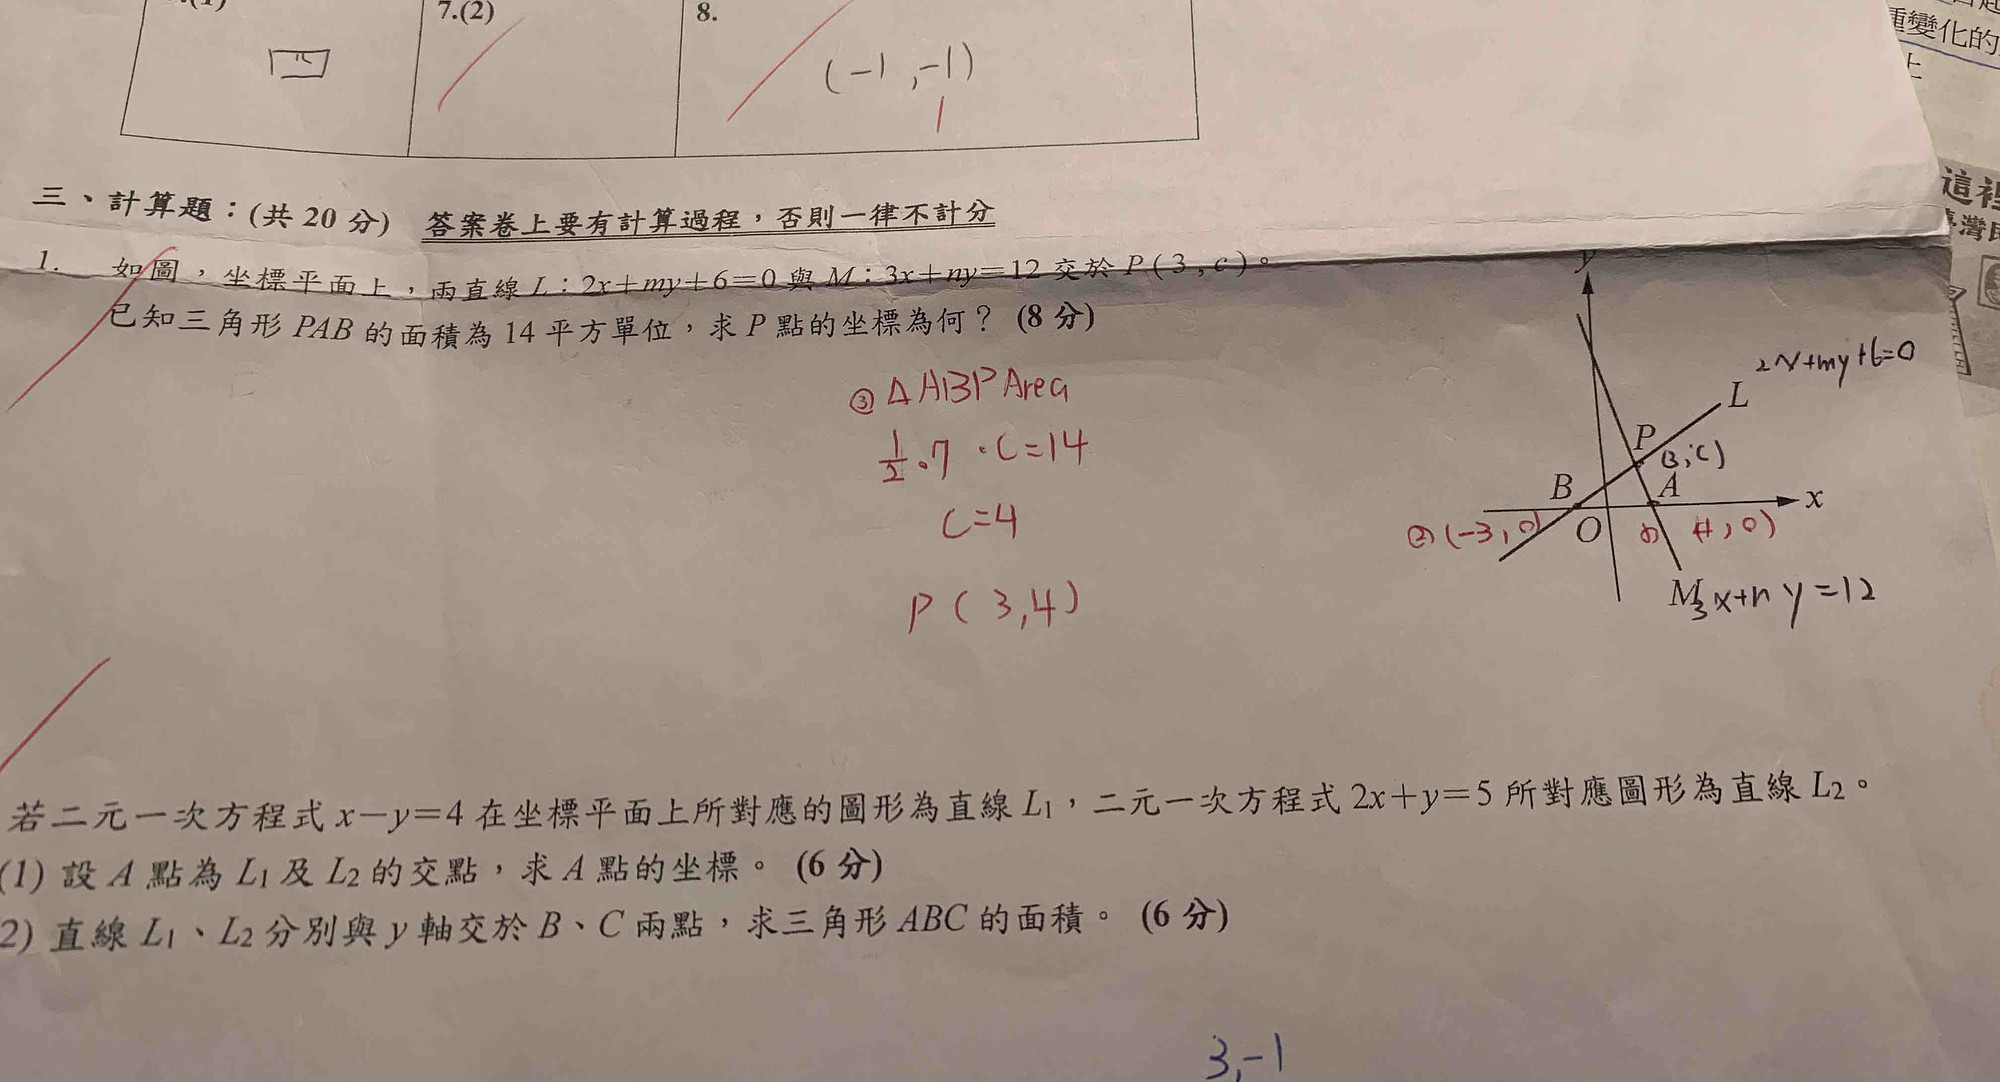 7.(2)
8.
(-1,-1)
三、計算題：(共 20 分) 答案卷上要有計算過程，否則一律不計分
1. 如圖，坐標平面上，兩直線 L：2x＋my＋6＝0 與 M：3x＋ny＝12 交於 P(3,c)。
已知三角形 PAB 的面積為 14 平方單位，求 P 點的坐標為何？ (8 分)
③ △ABP Area
1/2·7·C=14
C=4
P(3,4)
y
2x+my+6=0
L
P
(3,c)
B
A
x
② (-3,0)
O
(4,0)
M
3x+ny=12
若二元一次方程式 x－y＝4 在坐標平面上所對應的圖形為直線 L1，二元一次方程式 2x＋y＝5 所對應圖形為直線 L2。
(1) 設 A 點為 L1 及 L2 的交點，求 A 點的坐標。 (6 分)
2) 直線 L1、L2 分別與 y 軸交於 B、C 兩點，求三角形 ABC 的面積。 (6 分)
3,-1
重變化的
上
這裡
臺灣民